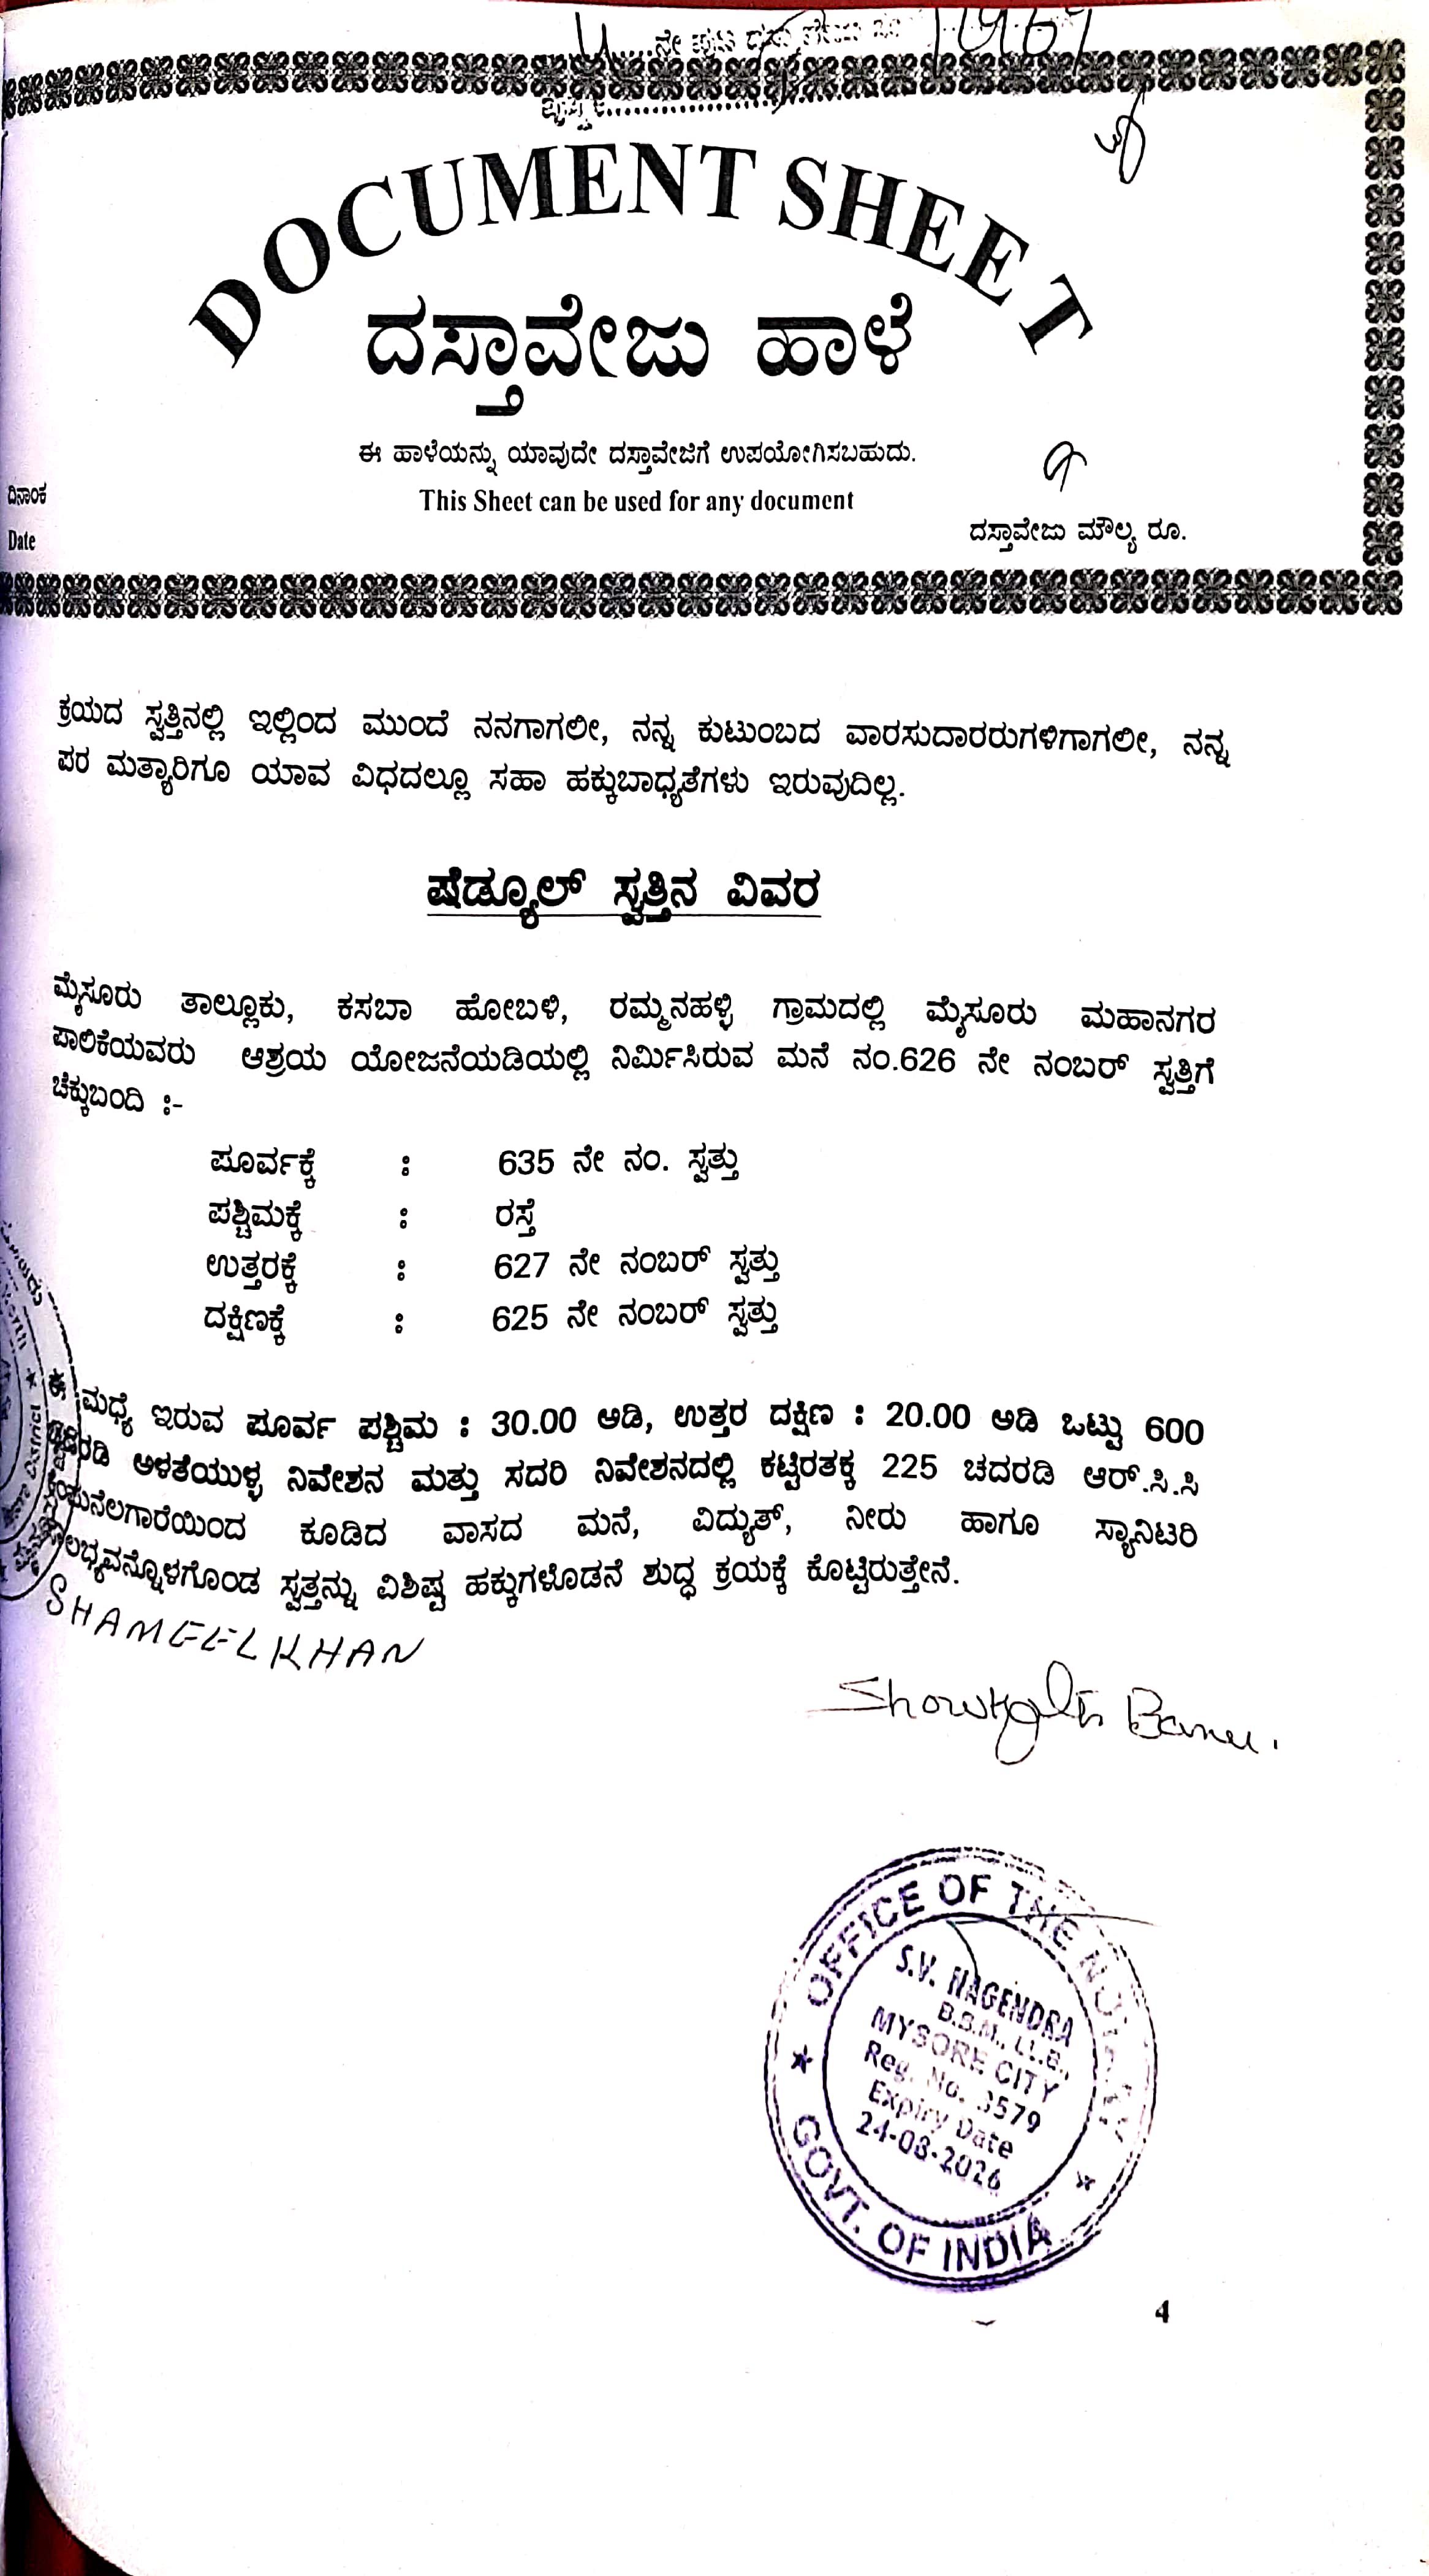 DOCUMENT SHEET
ದಸ್ತಾವೇಜು ಹಾಳೆ
ಈ ಹಾಳೆಯನ್ನು ಯಾವುದೇ ದಸ್ತಾವೇಜಿಗೆ ಉಪಯೋಗಿಸಬಹುದು.
This Sheet can be used for any document
ದಿನಾಂಕ
Date
ದಸ್ತಾವೇಜು ಮೌಲ್ಯ ರೂ.
ಕ್ರಯದ ಸ್ವತ್ತಿನಲ್ಲಿ ಇಲ್ಲಿಂದ ಮುಂದೆ ನನಗಾಗಲೀ, ನನ್ನ ಕುಟುಂಬದ ವಾರಸುದಾರರುಗಳಿಗಾಗಲೀ, ನನ್ನ
ಪರ ಮತ್ಯಾರಿಗೂ ಯಾವ ವಿಧದಲ್ಲೂ ಸಹಾ ಹಕ್ಕುಬಾಧ್ಯತೆಗಳು ಇರುವುದಿಲ್ಲ.
ಷೆಡ್ಯೂಲ್ ಸ್ವತ್ತಿನ ವಿವರ
ಮೈಸೂರು ತಾಲ್ಲೂಕು, ಕಸಬಾ ಹೋಬಳಿ, ರಮ್ಮನಹಳ್ಳಿ ಗ್ರಾಮದಲ್ಲಿ ಮೈಸೂರು ಮಹಾನಗರ
ಪಾಲಿಕೆಯವರು ಆಶ್ರಯ ಯೋಜನೆಯಡಿಯಲ್ಲಿ ನಿರ್ಮಿಸಿರುವ ಮನೆ ನಂ.626 ನೇ ನಂಬರ್ ಸ್ವತ್ತಿಗೆ
ಚೆಕ್ಕುಬಂದಿ :-
ಪೂರ್ವಕ್ಕೆ : 635 ನೇ ನಂ. ಸ್ವತ್ತು
ಪಶ್ಚಿಮಕ್ಕೆ : ರಸ್ತೆ
ಉತ್ತರಕ್ಕೆ : 627 ನೇ ನಂಬರ್ ಸ್ವತ್ತು
ದಕ್ಷಿಣಕ್ಕೆ : 625 ನೇ ನಂಬರ್ ಸ್ವತ್ತು
ಈ ಮಧ್ಯೆ ಇರುವ ಪೂರ್ವ ಪಶ್ಚಿಮ : 30.00 ಅಡಿ, ಉತ್ತರ ದಕ್ಷಿಣ : 20.00 ಅಡಿ ಒಟ್ಟು 600
ಚದರಡಿ ಅಳತೆಯುಳ್ಳ ನಿವೇಶನ ಮತ್ತು ಸದರಿ ನಿವೇಶನದಲ್ಲಿ ಕಟ್ಟಿರತಕ್ಕ 225 ಚದರಡಿ ಆರ್.ಸಿ.ಸಿ
ಕೆಂಪುನೆಲಗಾರೆಯಿಂದ ಕೂಡಿದ ವಾಸದ ಮನೆ, ವಿದ್ಯುತ್, ನೀರು ಹಾಗೂ ಸ್ಯಾನಿಟರಿ
ಸೌಲಭ್ಯವನ್ನೊಳಗೊಂಡ ಸ್ವತ್ತನ್ನು ವಿಶಿಷ್ಟ ಹಕ್ಕುಗಳೊಡನೆ ಶುದ್ಧ ಕ್ರಯಕ್ಕೆ ಕೊಟ್ಟಿರುತ್ತೇನೆ.
SHAMEELKHAN
Showkath Banu.
OFFICE OF THE NOTARY
S.V. NAGENDRA
B.B.M., LL.B.,
MYSORE CITY
Reg. No. 3579
Expiry Date
24-08-2026
GOVT. OF INDIA
4